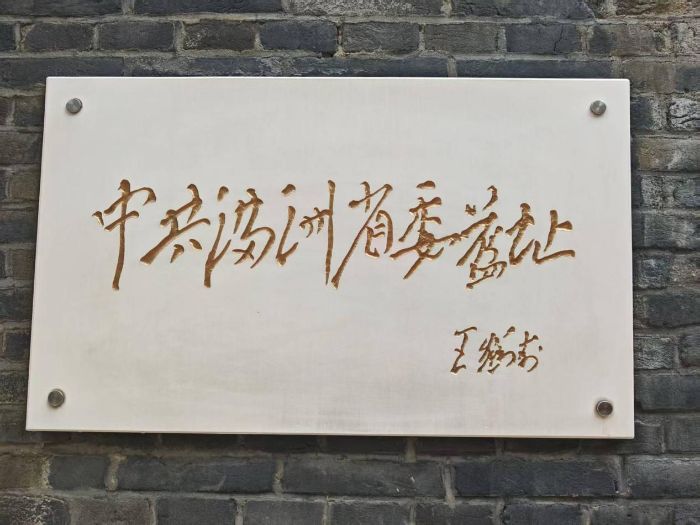 中共满洲省委舊址
王鹤寿